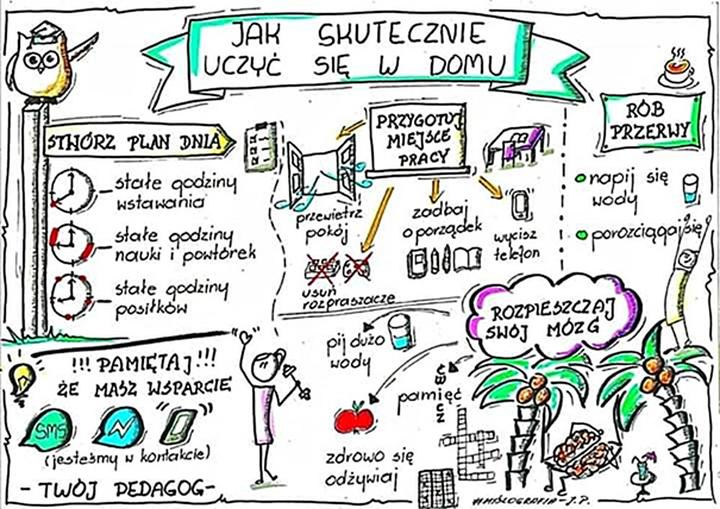 JAK SKUTECZNIE
UCZYĆ SIĘ W DOMU
STWÓRZ PLAN DNIA
stałe godziny
wstawania
stałe godziny
nauki i powtórek
stałe godziny
posiłków
PRZYGOTUJ
MIEJSCE
PRACY
przewietrz
pokój
usuń
rozpraszacze
zadbaj
o porządek
wycisz
telefon
RÓB
PRZERWY
napij się
wody
porozciągaj się
!!! PAMIĘTAJ !!!
ŻE MASZ WSPARCIE
SMS
(jesteśmy w kontakcie)
- TWÓJ PEDAGOG -
ROZPIESZCZAJ
SWÓJ MÓZG
pij dużo
wody
ćwicz
pamięć
zdrowo się
odżywiaj
#MYŚLOGRAFIA - J.P.